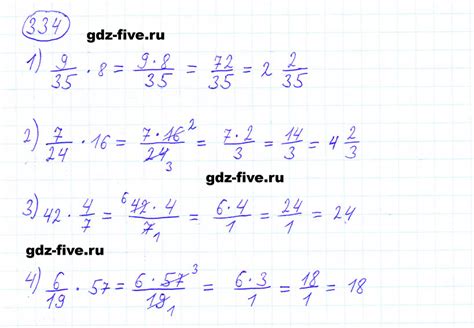 334
gdz-five.ru
1) 9/35 · 8 = 9·8/35 = 72/35 = 2 2/35
2) 7/24 · 16 = 7·16 2/24 3 = 7·2/3 = 14/3 = 4 2/3
gdz-five.ru
3) 42 · 4/7 = 6 42·4/7 1 = 6·4/1 = 24/1 = 24
gdz-five.ru
4) 6/19 · 57 = 6·57 3/19 1 = 6·3/1 = 18/1 = 18